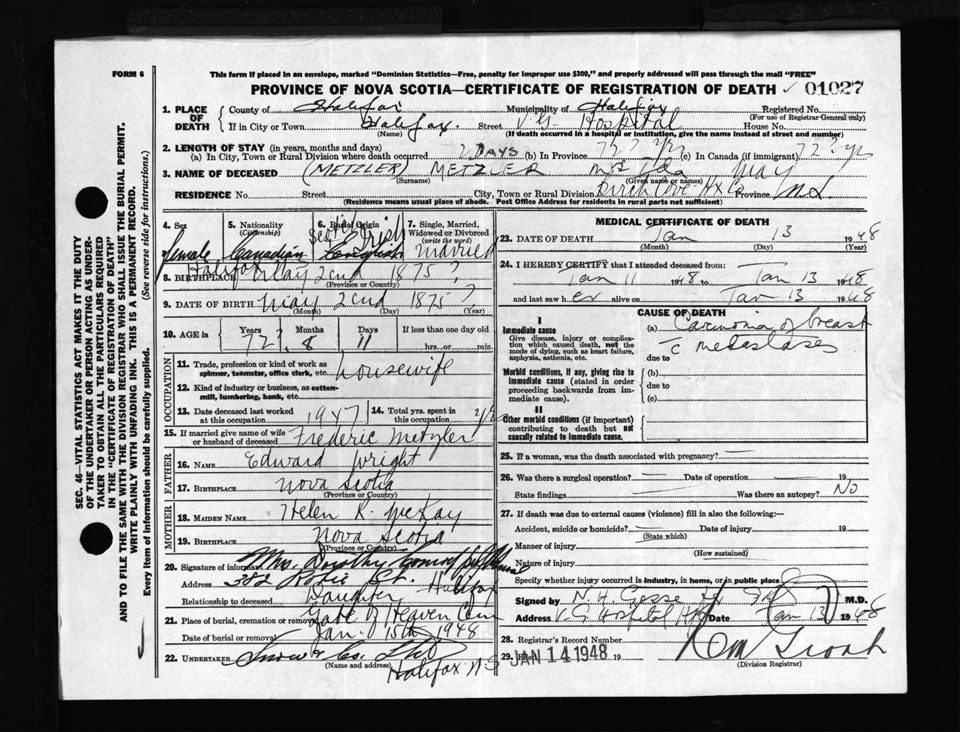 FORM 6
This form if placed in an envelope, marked "Dominion Statistics—Free, penalty for improper use $300," and properly addressed will pass through the mail "FREE"
PROVINCE OF NOVA SCOTIA—CERTIFICATE OF REGISTRATION OF DEATH 01027
1. PLACE OF DEATH County of Halifax Municipality of Halifax Registered No.
(For use of Registrar-General only)
If in City or Town Halifax. Street V.G. Hospital House No.
(Name) (If death occurred in a hospital or institution, give the name instead of street and number)
2. LENGTH OF STAY (in years, months and days)
(a) In City, Town or Rural Division where death occurred 2 DAYS (b) In Province 72 ? yrs (c) In Canada (if immigrant) 72 yr
3. NAME OF DECEASED (METZLER) METZLER Mrs Ida May
(Surname) (Given name or names)
RESIDENCE No. Street City, Town or Rural Division Birch Cove Hx Co Province N.S.
(Residence means usual place of abode. Post Office Address for residents in rural parts not sufficient)
4. Sex female
5. Nationality (Citizenship) Canadian
6. Racial Origin Irish English
7. Single, Married, Widowed or Divorced (write the word) Married
8. BIRTHPLACE Halifax May 2cnd 1875 ?
(Province or Country)
9. DATE OF BIRTH May 2cnd 1875 ?
(Month) (Day) (Year)
10. AGE in Years 72? Months 8 Days 11 If less than one day old hrs. or min.
OCCUPATION
11. Trade, profession or kind of work as spinner, teamster, office clerk, etc. housewife
12. Kind of industry or business, as cotton-mill, lumbering, bank, etc.
13. Date deceased last worked at this occupation 1947 14. Total yrs. spent in this occupation
15. If married give name of wife or husband of deceased Frederic Metzler
FATHER
16. NAME Edward Wright
17. BIRTHPLACE Nova Scotia
(Province or Country)
MOTHER
18. MAIDEN NAME Helen R. McKay
19. BIRTHPLACE Nova Scotia
(Province or Country)
20. Signature of informant Mrs. Dorothy
Address 382 Robie St. Halifax
Relationship to deceased Daughter
21. Place of burial, cremation or removal Gate of Heaven Cem
Date of burial or removal Jan. 15th 1948
22. UNDERTAKER Snow & Co. Ltd
(Name and address) Halifax N S
MEDICAL CERTIFICATE OF DEATH
23. DATE OF DEATH Jan 13 1948
(Month) (Day) (Year)
24. I HEREBY CERTIFY that I attended deceased from:
Jan 11 1948 to Jan 13 1948
and last saw her alive on Jan 13 1948
CAUSE OF DEATH
I
Immediate cause
Give disease, injury or complication which caused death, not the mode of dying, such as heart failure, asphyxia, asthenia, etc.
(a) Carcinoma of breast
due to c metastases
Morbid conditions, if any, giving rise to immediate cause (stated in order proceeding backwards from immediate cause)
(b)
due to
(c)
II
Other morbid conditions (if important) contributing to death but not causally related to immediate cause.
25. If a woman, was the death associated with pregnancy?
26. Was there a surgical operation? Date of operation 19
State findings Was there an autopsy? No
27. If death was due to external causes (violence) fill in also the following:—
Accident, suicide or homicide? Date of injury 19
(State which)
Manner of injury
(How sustained)
Nature of injury
Specify whether injury occurred in industry, in home, or in public place
Signed by N. H. Gosse M.D.
V.G. Hospital Hfx Date Jan 13 1948
28. Registrar's Record Number
29. JAN 14 1948 19
(Division Registrar)
SEC. 46—VITAL STATISTICS ACT MAKES IT THE DUTY
OF THE UNDERTAKER OR PERSON ACTING AS UNDER-
TAKER TO OBTAIN ALL THE PARTICULARS REQUIRED
IN THE "CERTIFICATE OF REGISTRATION OF DEATH"
AND TO FILE THE SAME WITH THE DIVISION REGISTRAR WHO SHALL ISSUE THE BURIAL PERMIT.
WRITE PLAINLY WITH UNFADING INK. THIS IS A PERMANENT RECORD.
Every item of information should be carefully supplied. (See reverse side for instructions.)